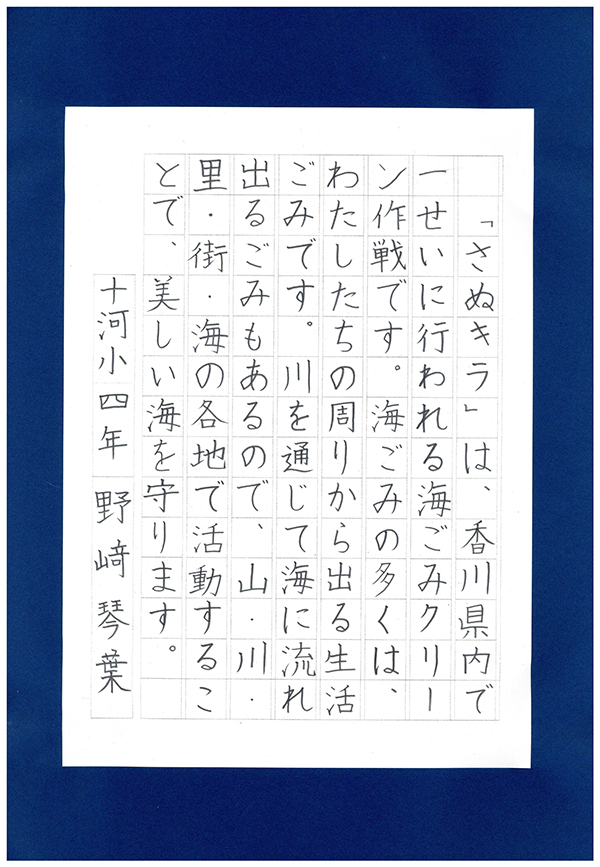 「さぬキラ」は、香川県内で
一せいに行われる海ごみクリー
ン作戦です。海ごみの多くは、
わたしたちの周りから出る生活
ごみです。川を通じて海に流れ
出るごみもあるので、山・川・
里・街・海の各地で活動するこ
とで、美しい海を守ります。
十河小四年 野﨑琴葉